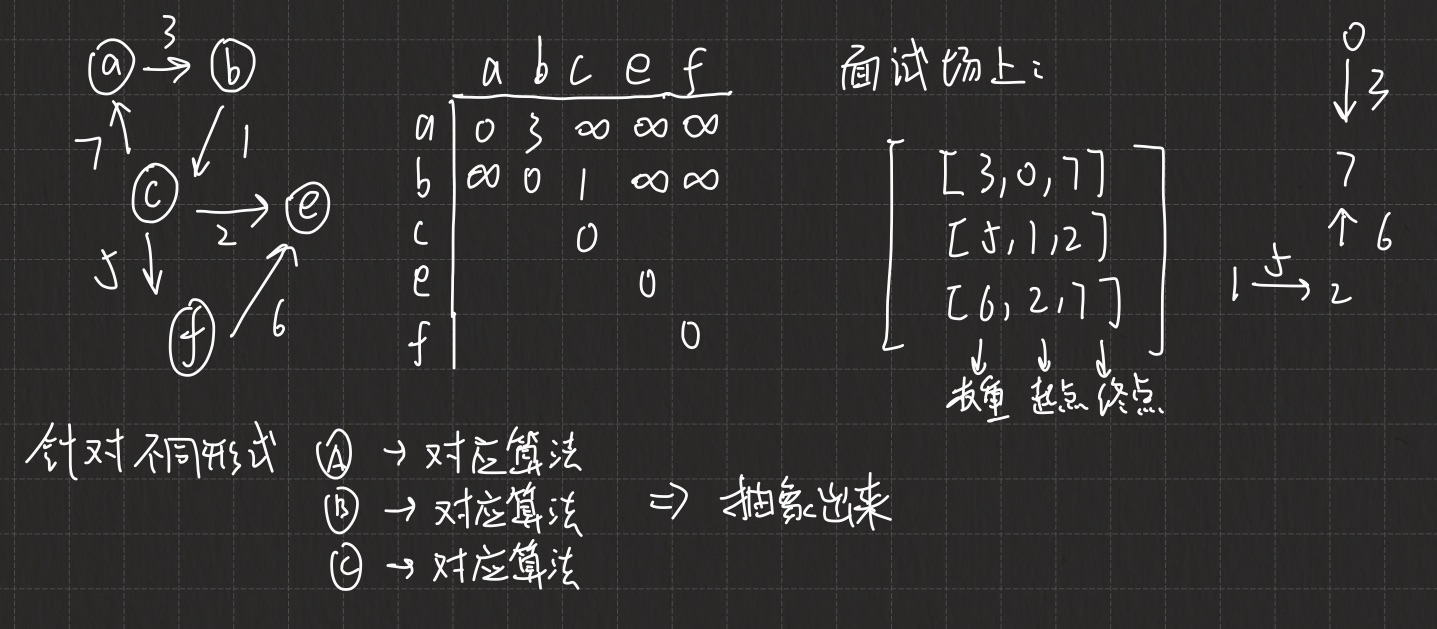 a 3 b
7 1
c 2 e
5 6
f
a b c e f
a 0 3 ∞ ∞ ∞
b ∞ 0 1 ∞ ∞
c 0
e 0
f 0
面试场上:
[3,0,7]
[5,1,2]
[6,2,7]
权重 起点 终点
0
3
7
6
1 5 2
针对不同形式 A → 对应算法
B → 对应算法
C → 对应算法
⇒ 抽象出来